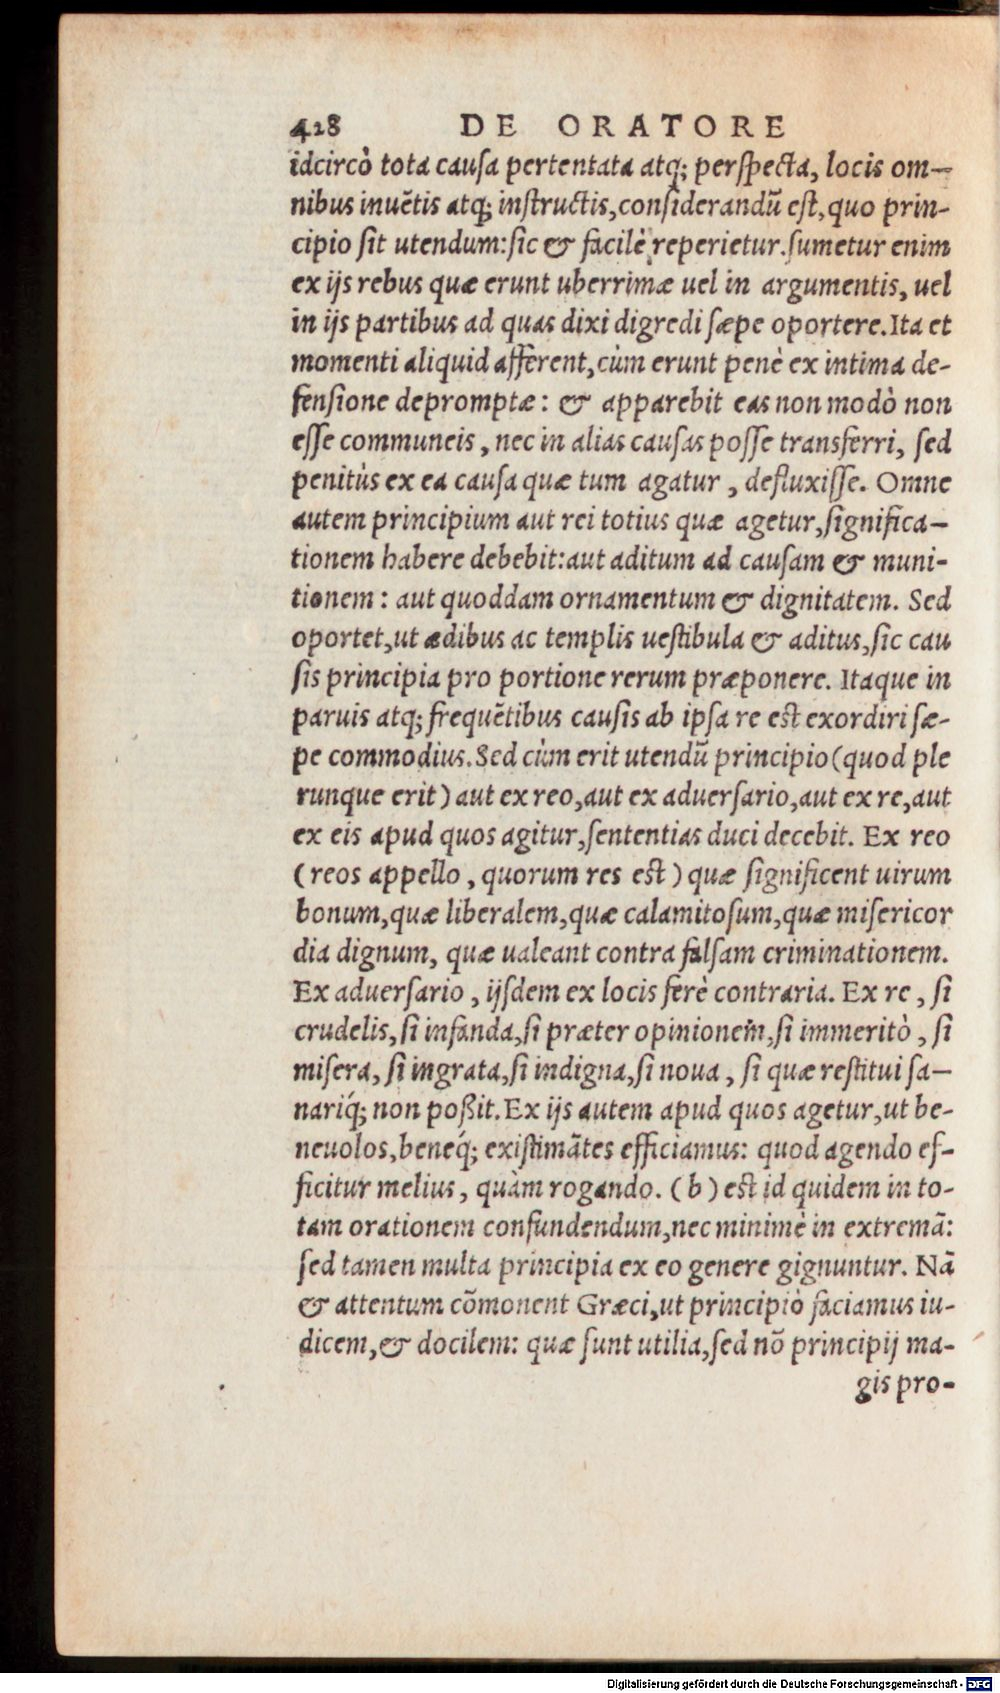 428 DE ORATORE
idcircò tota causa pertentata atq; perspecta, locis om-
nibus inuẽtis atq; instructis,considerandũ est,quo prin-
cipio sit utendum:sic & facilè reperietur.sumetur enim
ex ijs rebus quæ erunt uberrimæ uel in argumentis, uel
in ijs partibus ad quas dixi digredi sæpe oportere.Ita et
momenti aliquid afferent,cùm erunt penè ex intima de-
fensione depromptæ: & apparebit eas non modò non
esse communeis, nec in alias causas posse transferri, sed
penitùs ex ea causa quæ tum agatur, defluxisse. Omne
autem principium aut rei totius quæ agetur,significa-
tionem habere debebit:aut aditum ad causam & muni-
tionem: aut quoddam ornamentum & dignitatem. Sed
oportet,ut ædibus ac templis uestibula & aditus,sic cau
sis principia pro portione rerum præponere. Itaque in
paruis atq; frequẽtibus causis ab ipsa re est exordiri sæ-
pe commodius.Sed cùm erit utendũ principio(quod ple
runque erit) aut ex reo,aut ex aduersario,aut ex re,aut
ex eis apud quos agitur,sententias duci decebit. Ex reo
(reos appello, quorum res est) quæ significent uirum
bonum,quæ liberalem,quæ calamitosum,quæ misericor
dia dignum, quæ ualeant contra falsam criminationem.
Ex aduersario, ijsdem ex locis ferè contraria. Ex re, si
crudelis,si infanda,si præter opinionem,si immeritò, si
misera, si ingrata,si indigna,si noua, si quæ restitui sa-
nariq́; non poßit.Ex ijs autem apud quos agetur,ut be-
neuolos,beneq́; existimãtes efficiamus: quod agendo ef-
ficitur melius, quàm rogando. (b) est id quidem in to-
tam orationem confundendum,nec minimè in extremã:
sed tamen multa principia ex eo genere gignuntur. Nã
& attentum cõmonent Græci,ut principiò faciamus iu-
dicem,& docilem: quæ sunt utilia,sed nõ principij ma-
gis pro-
Digitalisierung gefördert durch die Deutsche Forschungsgemeinschaft - DFG